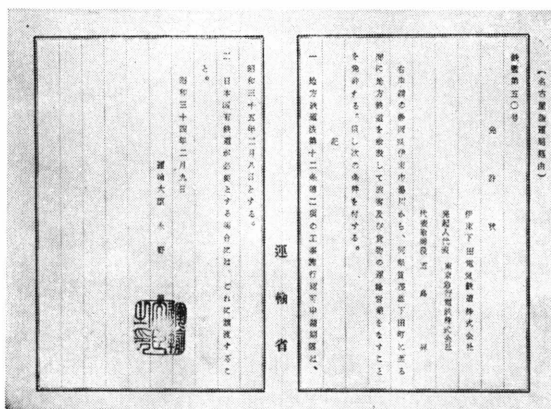 (名古屋陸運局経由)
鉄監第五〇号
免許状
伊東下田電気鉄道株式会社
発起人代表 東京急行電鉄株式会社
代表取締役 五島 昇
右申請の静岡県伊東市湯川から、同県賀茂郡下田町に至る
間に地方鉄道を敷設して旅客及び貨物の運輸営業をなすこと
を免許する。但し次の条件を付する。
記
一 地方鉄道法第十三条第二項の工事施行認可申請期限は、
運輸省
昭和三十五年二月八日とする。
二 日本国有鉄道が必要とする場合には、これに譲渡するこ
と。
昭和三十四年二月九日
運輸大臣 永野 護